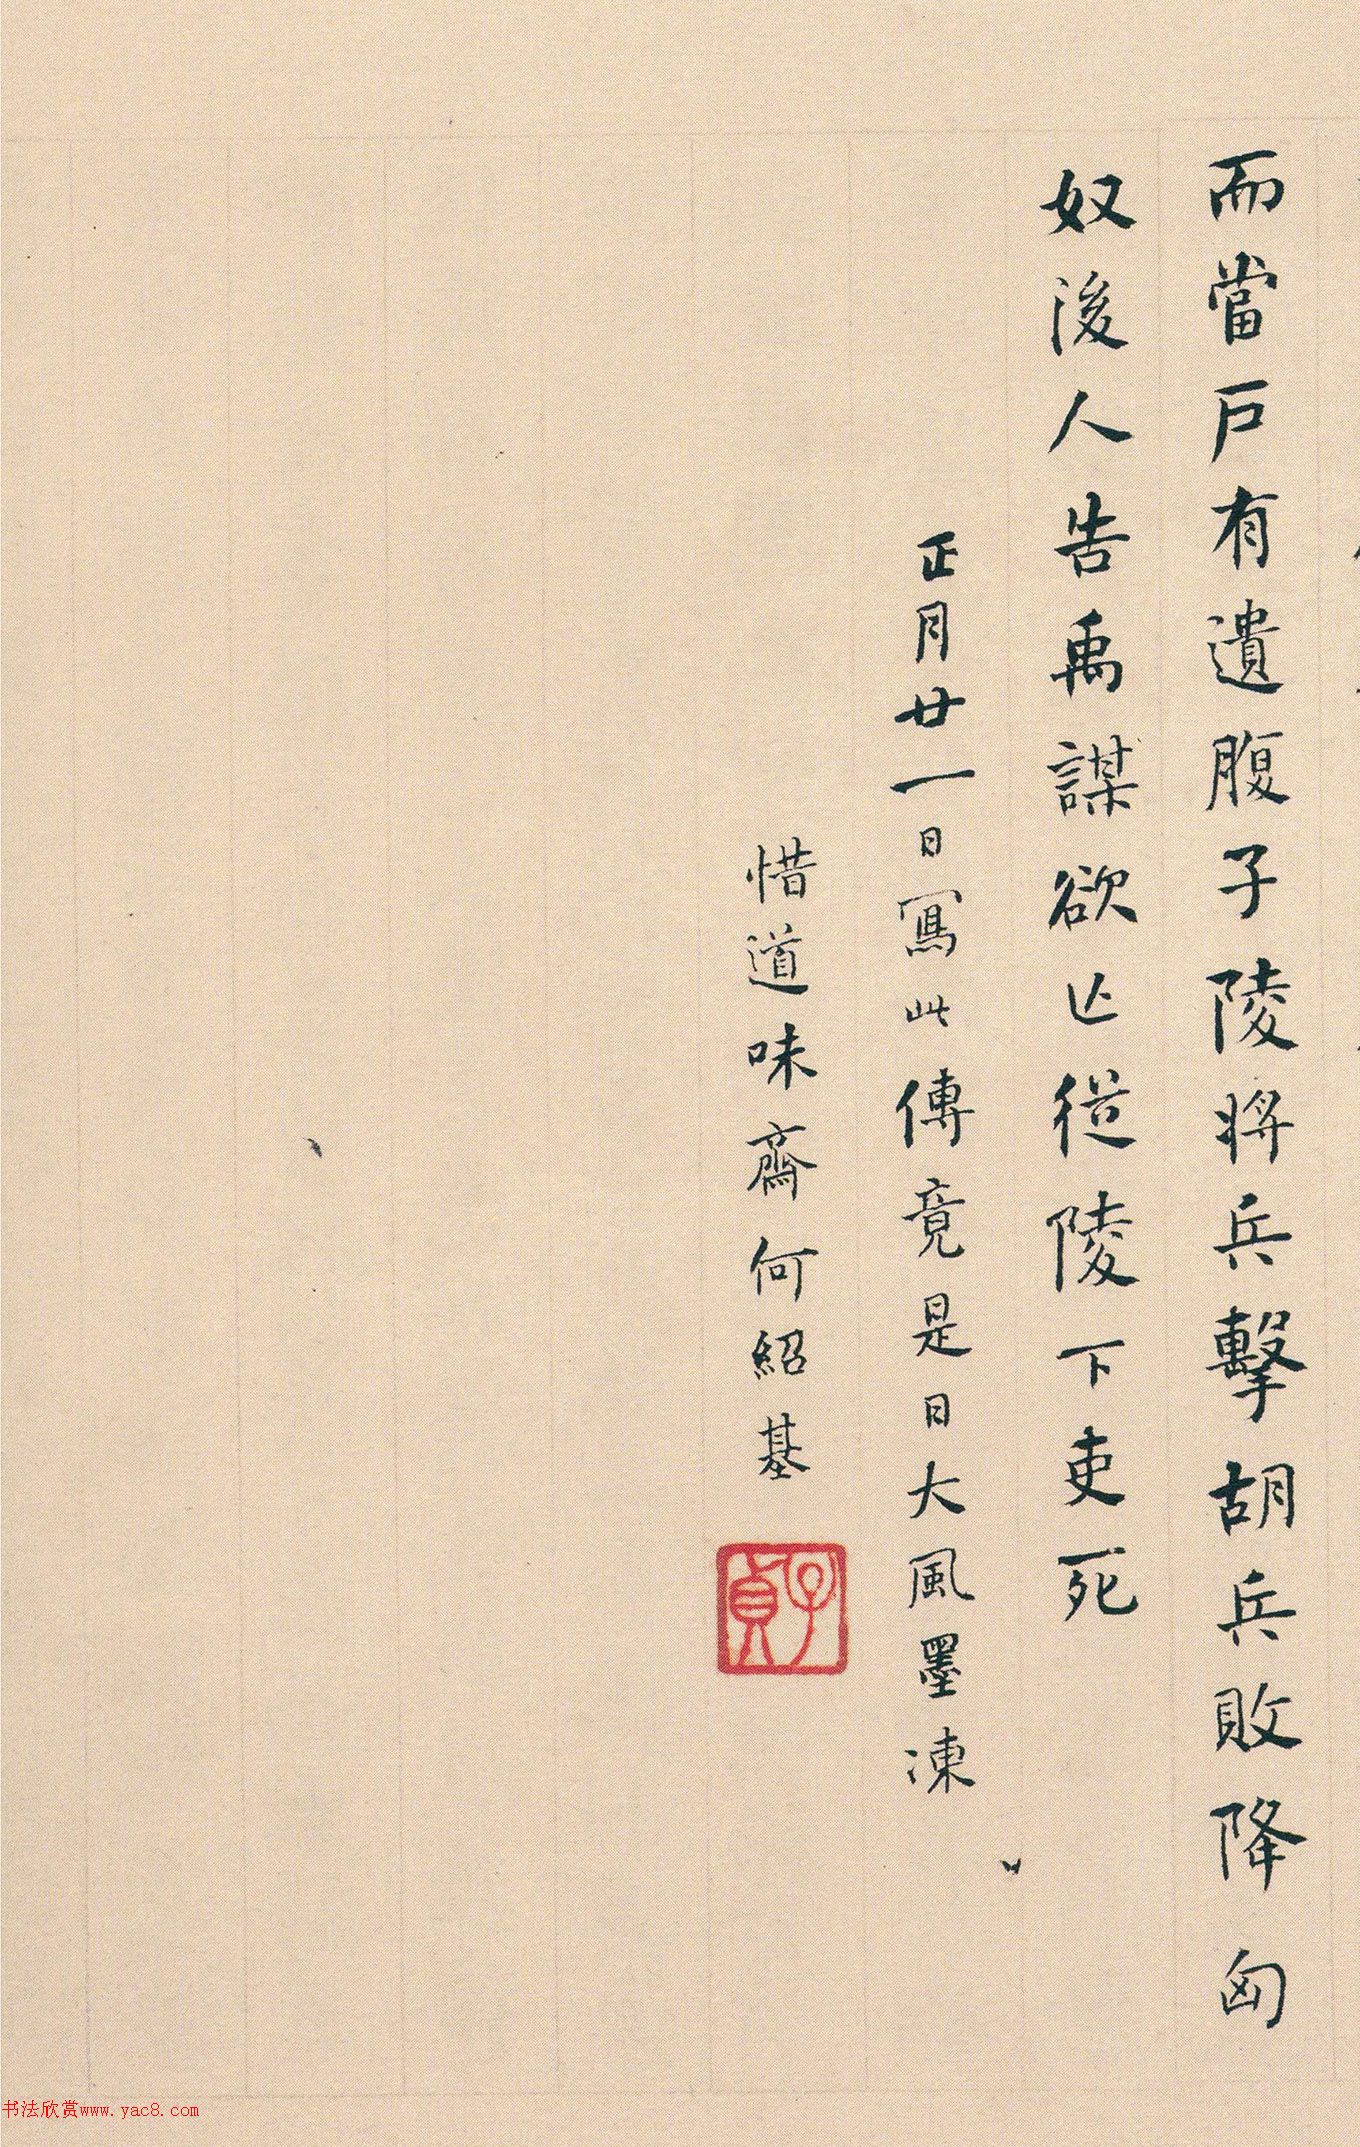 而當戶有遺腹子陵將兵擊胡兵敗降匈
奴後人告禹謀欲亡從陵下吏死
正月廿一日寫此傳竟是日大風墨凍
惜道味齋何紹基
子貞
书法欣赏www.yac8.com